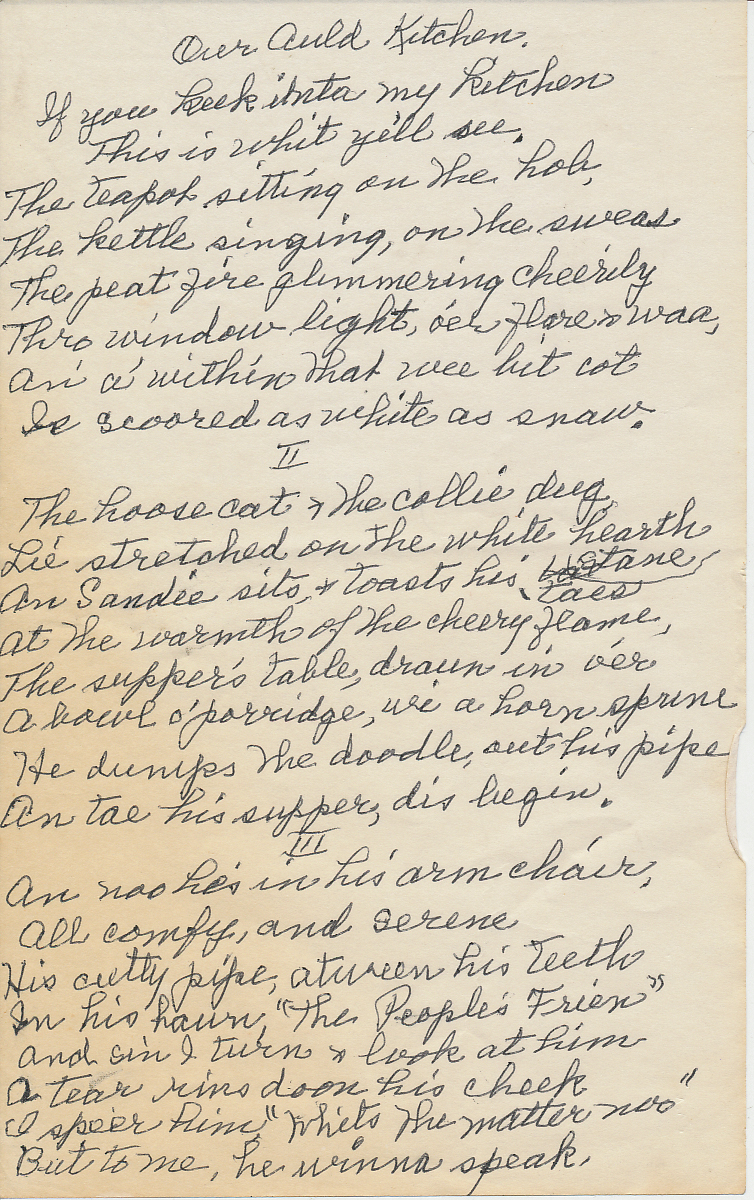 Our Auld Kitchen.
If you keek inta my kitchen
This is whit ye'll see.
The teapot sitting on the hob,
The kettle singing, on the sweas
The peat fire glimmering cheerily
Thro window light, o'er flare & waa,
An' a' within that wee bit cot
Is scoored as white as snaw.
II
The hoose cat & the collie dug
Lie stretched on the white hearth stane
An Sandie sits, & toasts his taes
At the warmth of the cheery flame,
The supper's table, drawn in o'er
A bowl o' porridge, wi a horn sprune
He dumps the doodle, out his pipe
An tae his supper, dis begin.
III
An noo he's in his arm chair,
All comfy, and serene
His cutty pipe, atween his teeth
In his haun, "The People's Frien"
and sin I turn & look at him
A tear rins doon his cheek
I speer him "Whits the matter noo"
But to me, he winna speak.